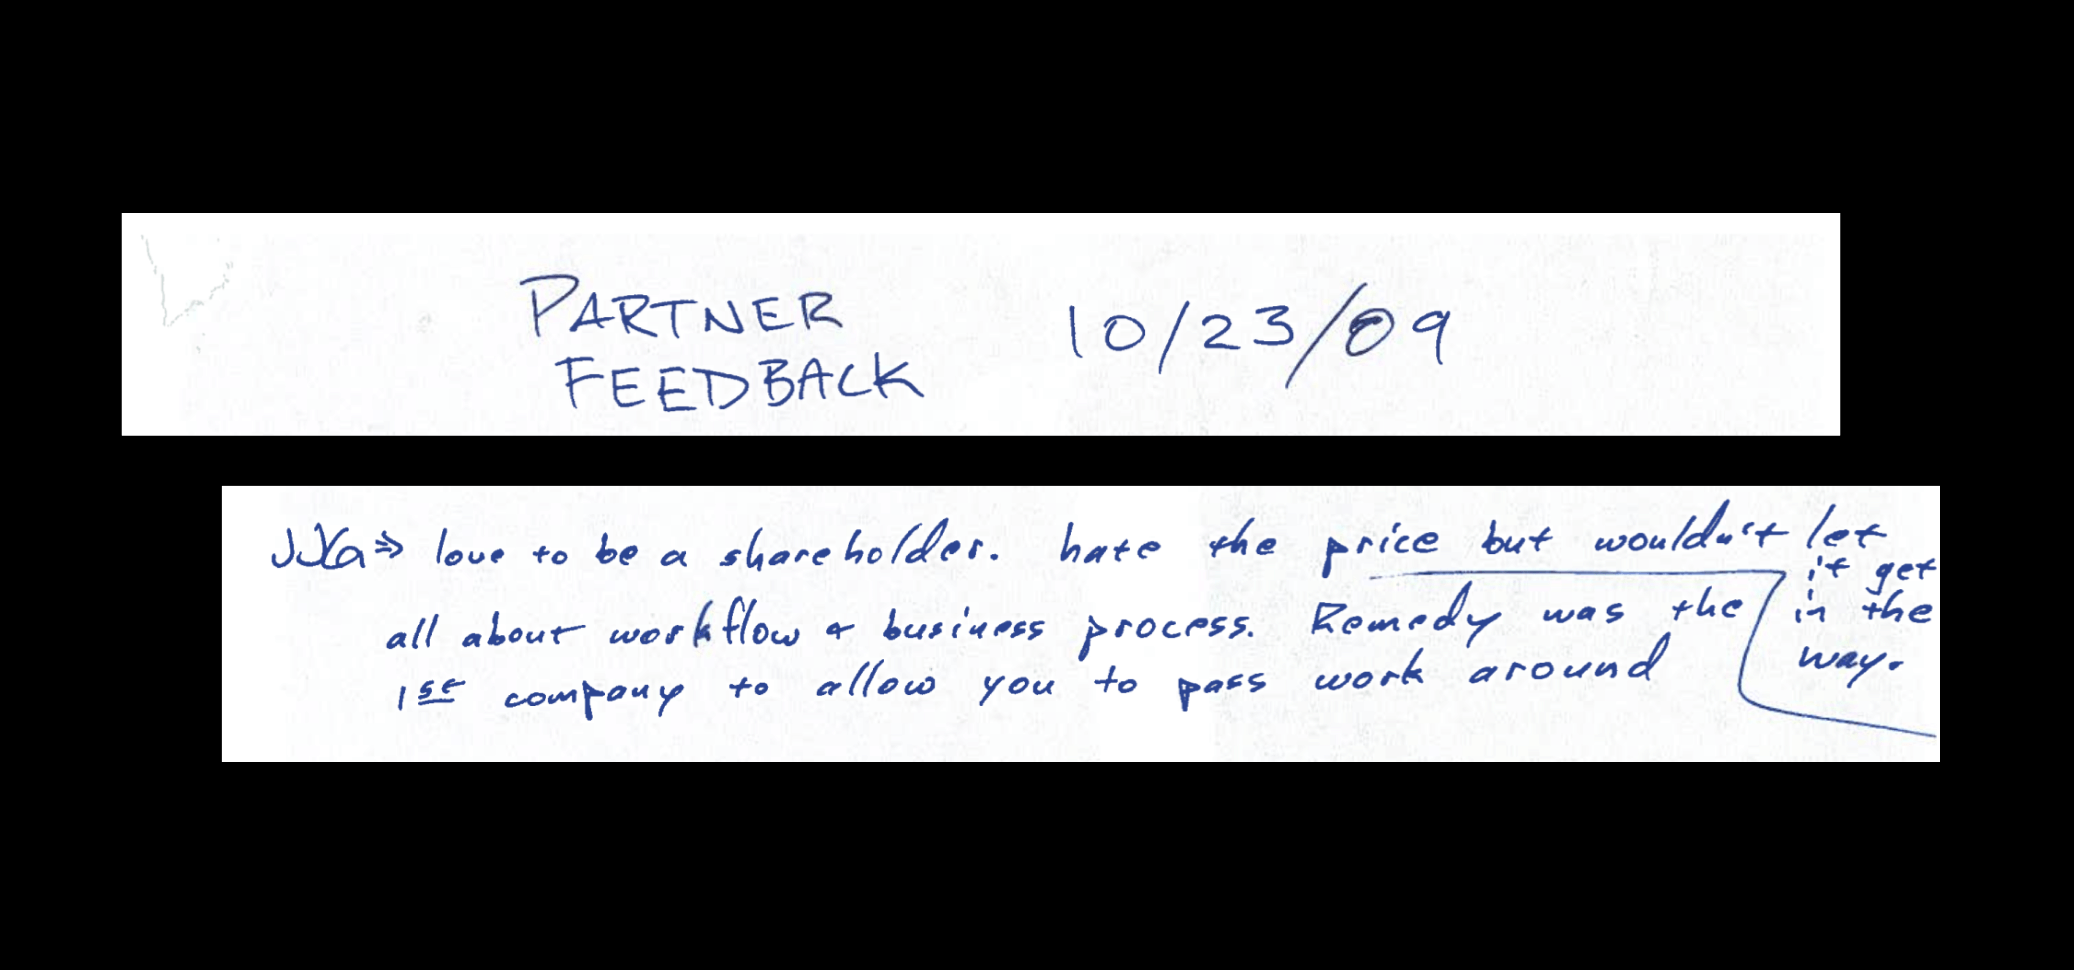 PARTNER 10/23/09
FEEDBACK
JJG => love to be a shareholder. hate the price but wouldn't let
it get
in the
way.
all about workflow & business process. Remedy was the
1st company to allow you to pass work around